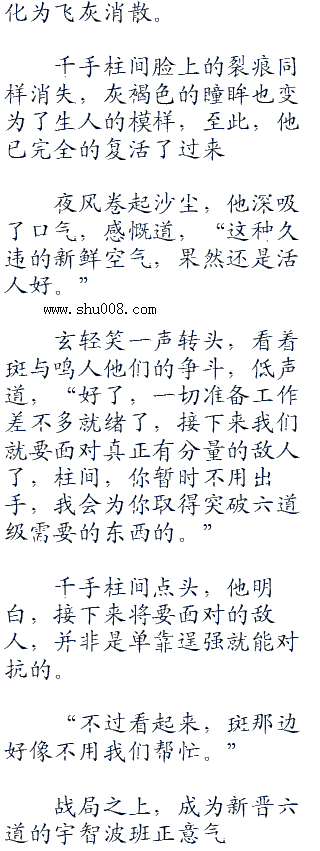 化为飞灰消散。
千手柱间脸上的裂痕同
样消失，灰褐色的瞳眸也变
为了生人的模样，至此，他
已完全的复活了过来
夜风卷起沙尘，他深吸
了口气，感慨道，“这种久
违的新鲜空气，果然还是活
人好。”
www.shu008.com
玄轻笑一声转头，看着
斑与鸣人他们的争斗，低声
道，“好了，一切准备工作
差不多就绪了，接下来我们
就要面对真正有分量的敌人
了，柱间，你暂时不用出
手，我会为你取得突破六道
级需要的东西的。”
千手柱间点头，他明
白，接下来将要面对的敌
人，并非是单靠逞强就能对
抗的。
“不过看起来，斑那边
好像不用我们帮忙。”
战局之上，成为新晋六
道的宇智波班正意气